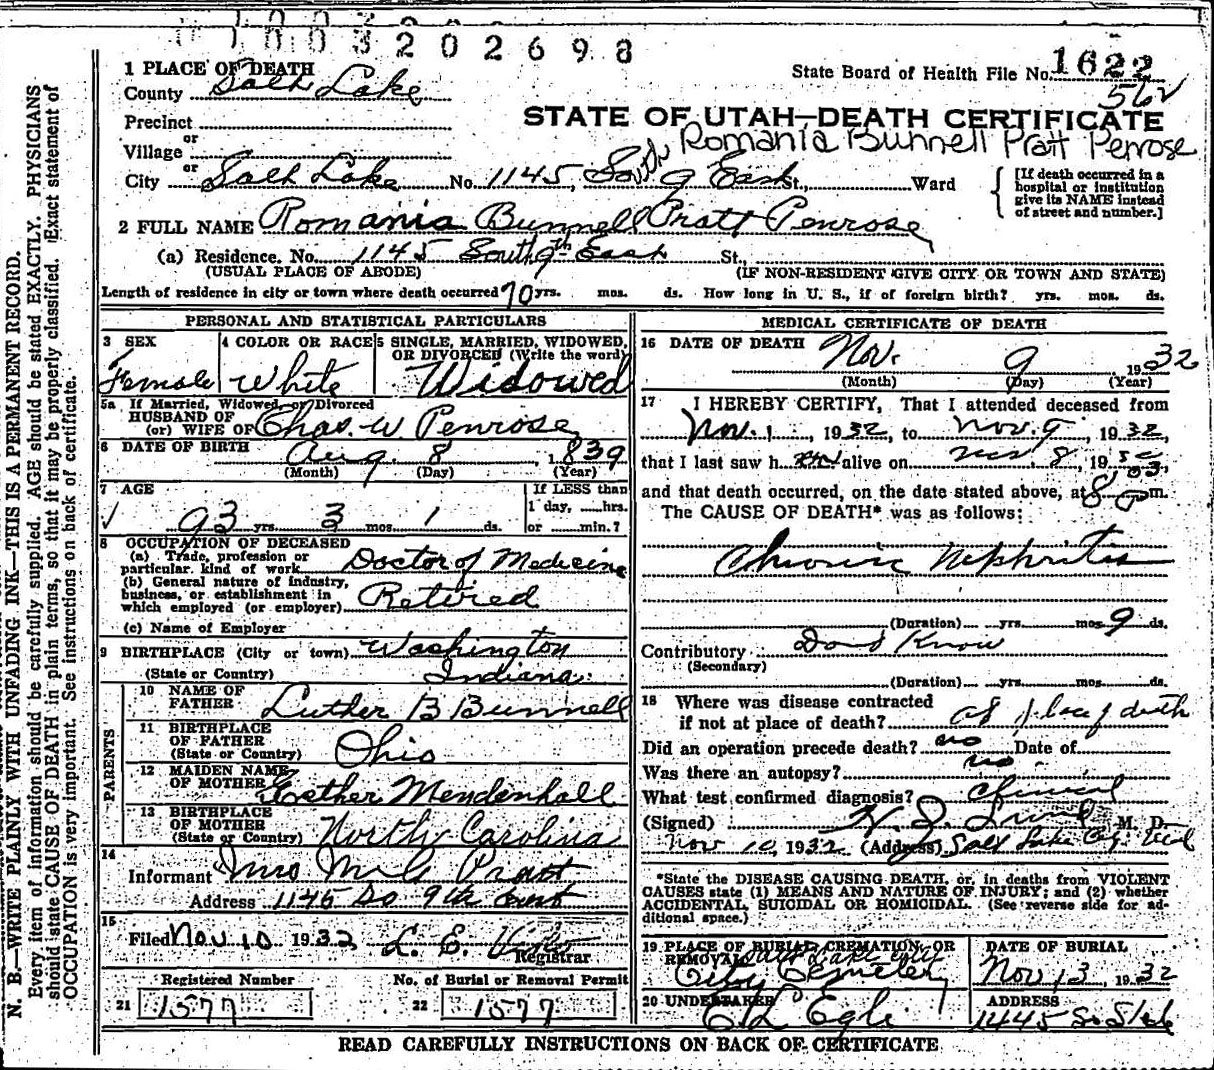 1003202698
1 PLACE OF DEATH
County Salt Lake
State Board of Health File No. 1622
562
Precinct
STATE OF UTAH—DEATH CERTIFICATE
or
Village
Romania Bunnell Pratt Penrose
or
City Salt Lake No. 1145, South 9 East St., Ward
[If death occurred in a hospital or institution give its NAME instead of street and number.]
2 FULL NAME Romania Bunnell Pratt Penrose
(a) Residence. No. 1145 South 9th East St.,
(USUAL PLACE OF ABODE) (IF NON-RESIDENT GIVE CITY OR TOWN AND STATE)
Length of residence in city or town where death occurred 70 yrs. mos. ds. How long in U. S., if of foreign birth? yrs. mos. ds.
PERSONAL AND STATISTICAL PARTICULARS
3 SEX
Female
4 COLOR OR RACE
White
5 SINGLE, MARRIED, WIDOWED,
OR DIVORCED (Write the word)
Widowed
5a If Married, Widowed, or Divorced
HUSBAND OF
(or) WIFE OF Chas. W Penrose
6 DATE OF BIRTH Aug. 8, 1839
(Month) (Day) (Year)
7 AGE
93 yrs. 3 mos. 1 ds.
If LESS than
1 day, hrs.
or min.?
8 OCCUPATION OF DECEASED
(a) Trade, profession or
particular kind of work Doctor of Medecine
(b) General nature of industry,
business, or establishment in
which employed (or employer) Retired
(c) Name of Employer
9 BIRTHPLACE (City or town) Washington
(State or Country) Indiana
PARENTS
10 NAME OF
FATHER Luther B Bunnell
11 BIRTHPLACE
OF FATHER
(State or Country) Ohio
12 MAIDEN NAME
OF MOTHER Esther Mendenhall
13 BIRTHPLACE
OF MOTHER
(State or Country) North Carolina
14
Informant Mrs Pratt
Address 1145 So 9th East
15
Filed Nov 10 1932 L. E.
Registrar
Registered Number
21 1577
No. of Burial or Removal Permit
22 1577
MEDICAL CERTIFICATE OF DEATH
16 DATE OF DEATH Nov. 9 1932
(Month) (Day) (Year)
17 I HEREBY CERTIFY, That I attended deceased from
Nov. 1, 1932, to Nov. 9, 1932,
that I last saw her alive on Nov. 8, 19
and that death occurred, on the date stated above, at 8 P m.
The CAUSE OF DEATH* was as follows:
Chronic Nephritis
(Duration) yrs. mos. 9 ds.
Contributory Dont Know
(Secondary)
(Duration) yrs. mos. ds.
18 Where was disease contracted
if not at place of death? at place of death
Did an operation precede death? no Date of
Was there an autopsy? no
What test confirmed diagnosis? Clinical
(Signed) M. D.
Nov 10, 1932 (Address) Salt Lake City, Utah
*State the DISEASE CAUSING DEATH, or, in deaths from VIOLENT
CAUSES state (1) MEANS AND NATURE OF INJURY; and (2) whether
ACCIDENTAL, SUICIDAL OR HOMICIDAL. (See reverse side for ad-
ditional space.)
19 PLACE OF BURIAL, CREMATION, OR
REMOVAL Salt Lake City
City Cemetery
DATE OF BURIAL
Nov 13, 1932
20 UNDERTAKER
C L Egli
ADDRESS
1445 So State
READ CAREFULLY INSTRUCTIONS ON BACK OF CERTIFICATE
N. B.—WRITE PLAINLY WITH UNFADING INK—THIS IS A PERMANENT RECORD.
Every item of information should be carefully supplied. AGE should be stated EXACTLY. PHYSICIANS
should state CAUSE OF DEATH in plain terms, so that it may be properly classified. Exact statement of
OCCUPATION is very important. See instructions on back of certificate.